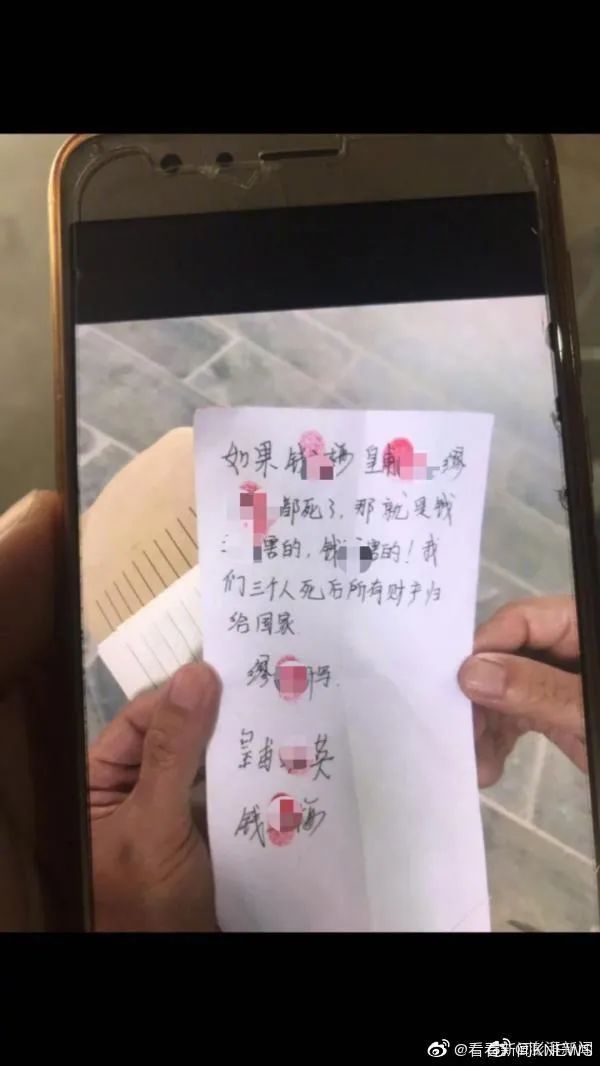 如果钱 梅 皇甫 缪
都死了,那就是钱
害的,钱 害的!我
们三个人死后所有财产归
给国家
缪 写.
皇甫 英
钱 梅
@看看新闻KNEWS
@澎湃新闻